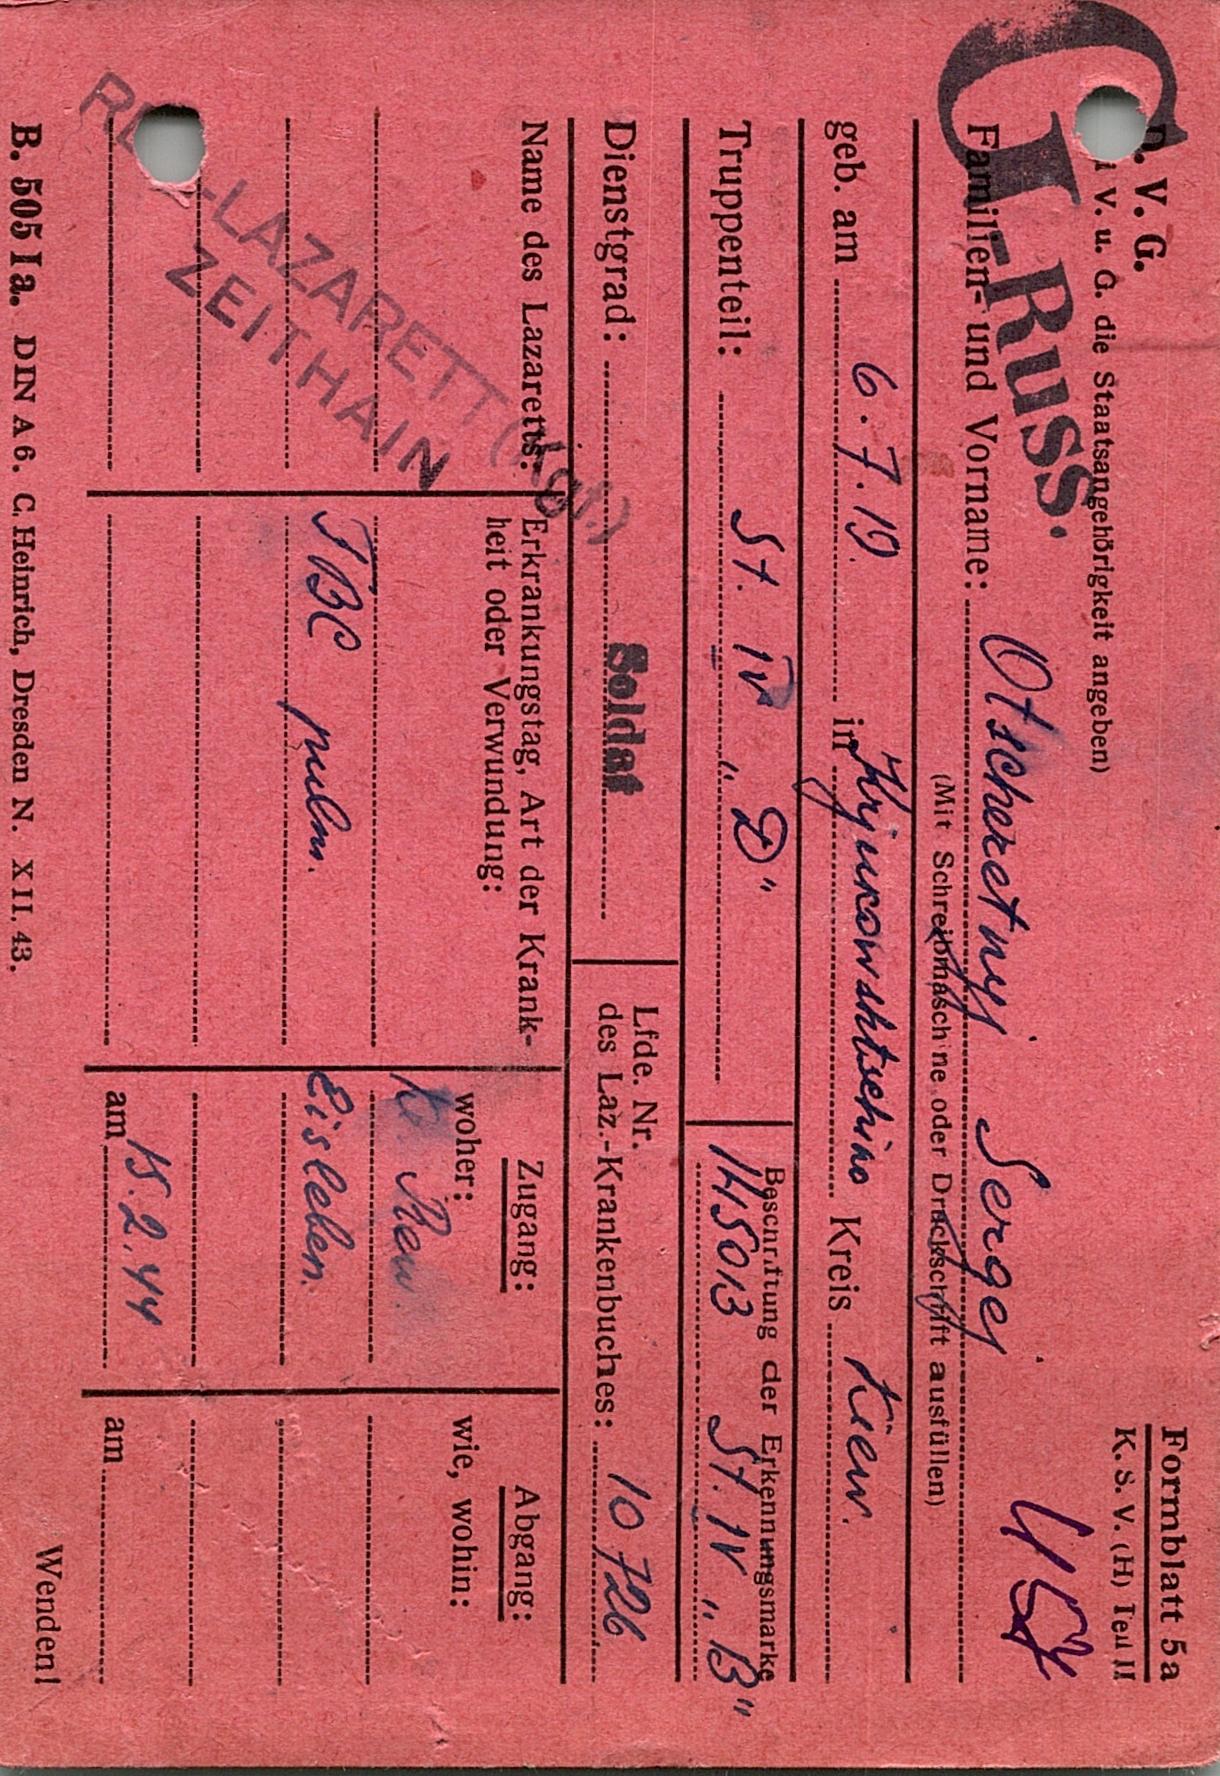 . V. G.
Formblatt 5a
K. S. V. (H) Teil II
i V. u. G. die Staatsangehörigkeit angeben)
G-Russ.
Familien- und Vorname: Otscheretnyj Sergej
(Mit Schreibmaschine oder Druckschrift ausfüllen)
geb. am 6.7.19. in Krjukowschtschina Kreis Kiew.
Truppenteil: St. IV "D"
Beschriftung der Erkennungsmarke
145013 St. IV "B"
Dienstgrad: Soldat
Lfde. Nr.
des Laz.-Krankenbuches: 10726
Name des Lazaretts:
RES-LAZARETT (Kgf.)
ZEITHAIN
Erkrankungstag, Art der Krank-
heit oder Verwundung:
TBC pulm.
Zugang:
woher:
Eisleben.
am 15.2.44
Abgang:
wie, wohin:
am
B. 505 Ia. DIN A 6. C. Heinrich, Dresden N. XII. 43.
Wenden!